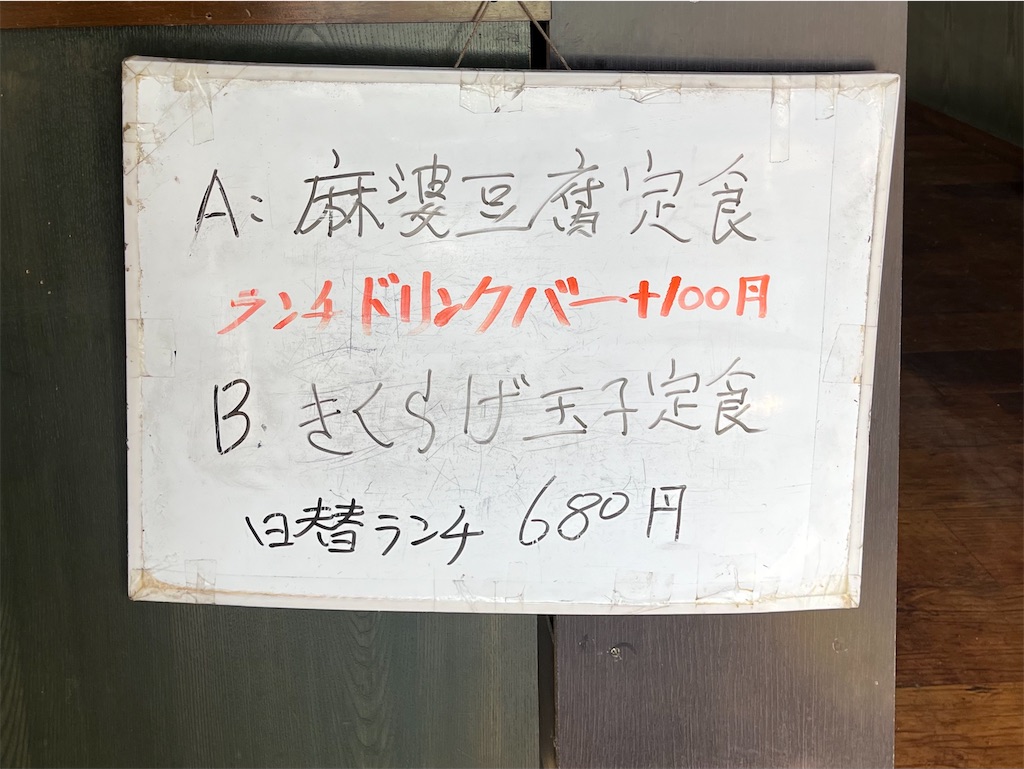 A: 麻婆豆腐定食
ランチドリンクバー+100円
B. きくらげ玉子定食
日替ランチ 680円